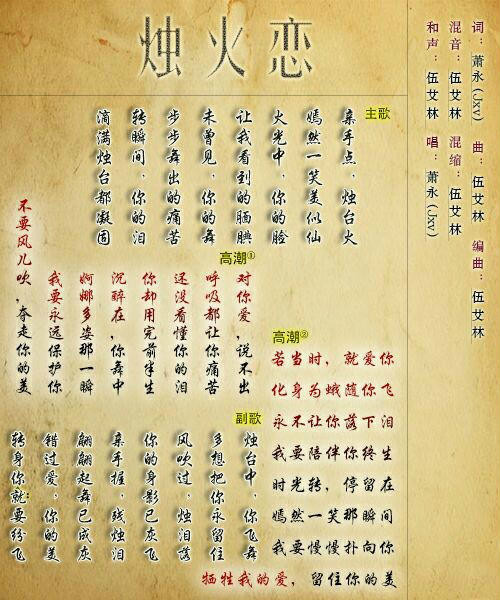 烛火恋
词：萧永(Jxv) 曲：伍艾林 编曲：伍艾林
混音：伍艾林 混缩：伍艾林
和声：伍艾林 唱：萧永(Jxv)
主歌
亲手点，烛台火
嫣然一笑美似仙
火光中，你的脸
让我看到的腼腆
未曾见，你的舞
步步舞出的痛苦
转瞬间，你的泪
滴满烛台都凝固
高潮①
对你爱，说不出
呼吸都让你痛苦
还没看懂你的泪
你却用完前半生
沉醉在，你舞中
婀娜多姿那一瞬
我要永远保护你
不要风儿吹，夺走你的美
副歌
烛台中，你飞舞
多想把你永留住
风吹过，烛泪落
你的身影已灰飞
亲手握，残烛泪
翩翩起舞已成灰
错过爱，你的美
转身你就要纷飞
高潮②
若当时，就爱你
化身为蛾随你飞
永不让你落下泪
我要陪伴你终生
时光转，停留在
嫣然一笑那瞬间
我要慢慢扑向你
牺牲我的爱，留住你的美